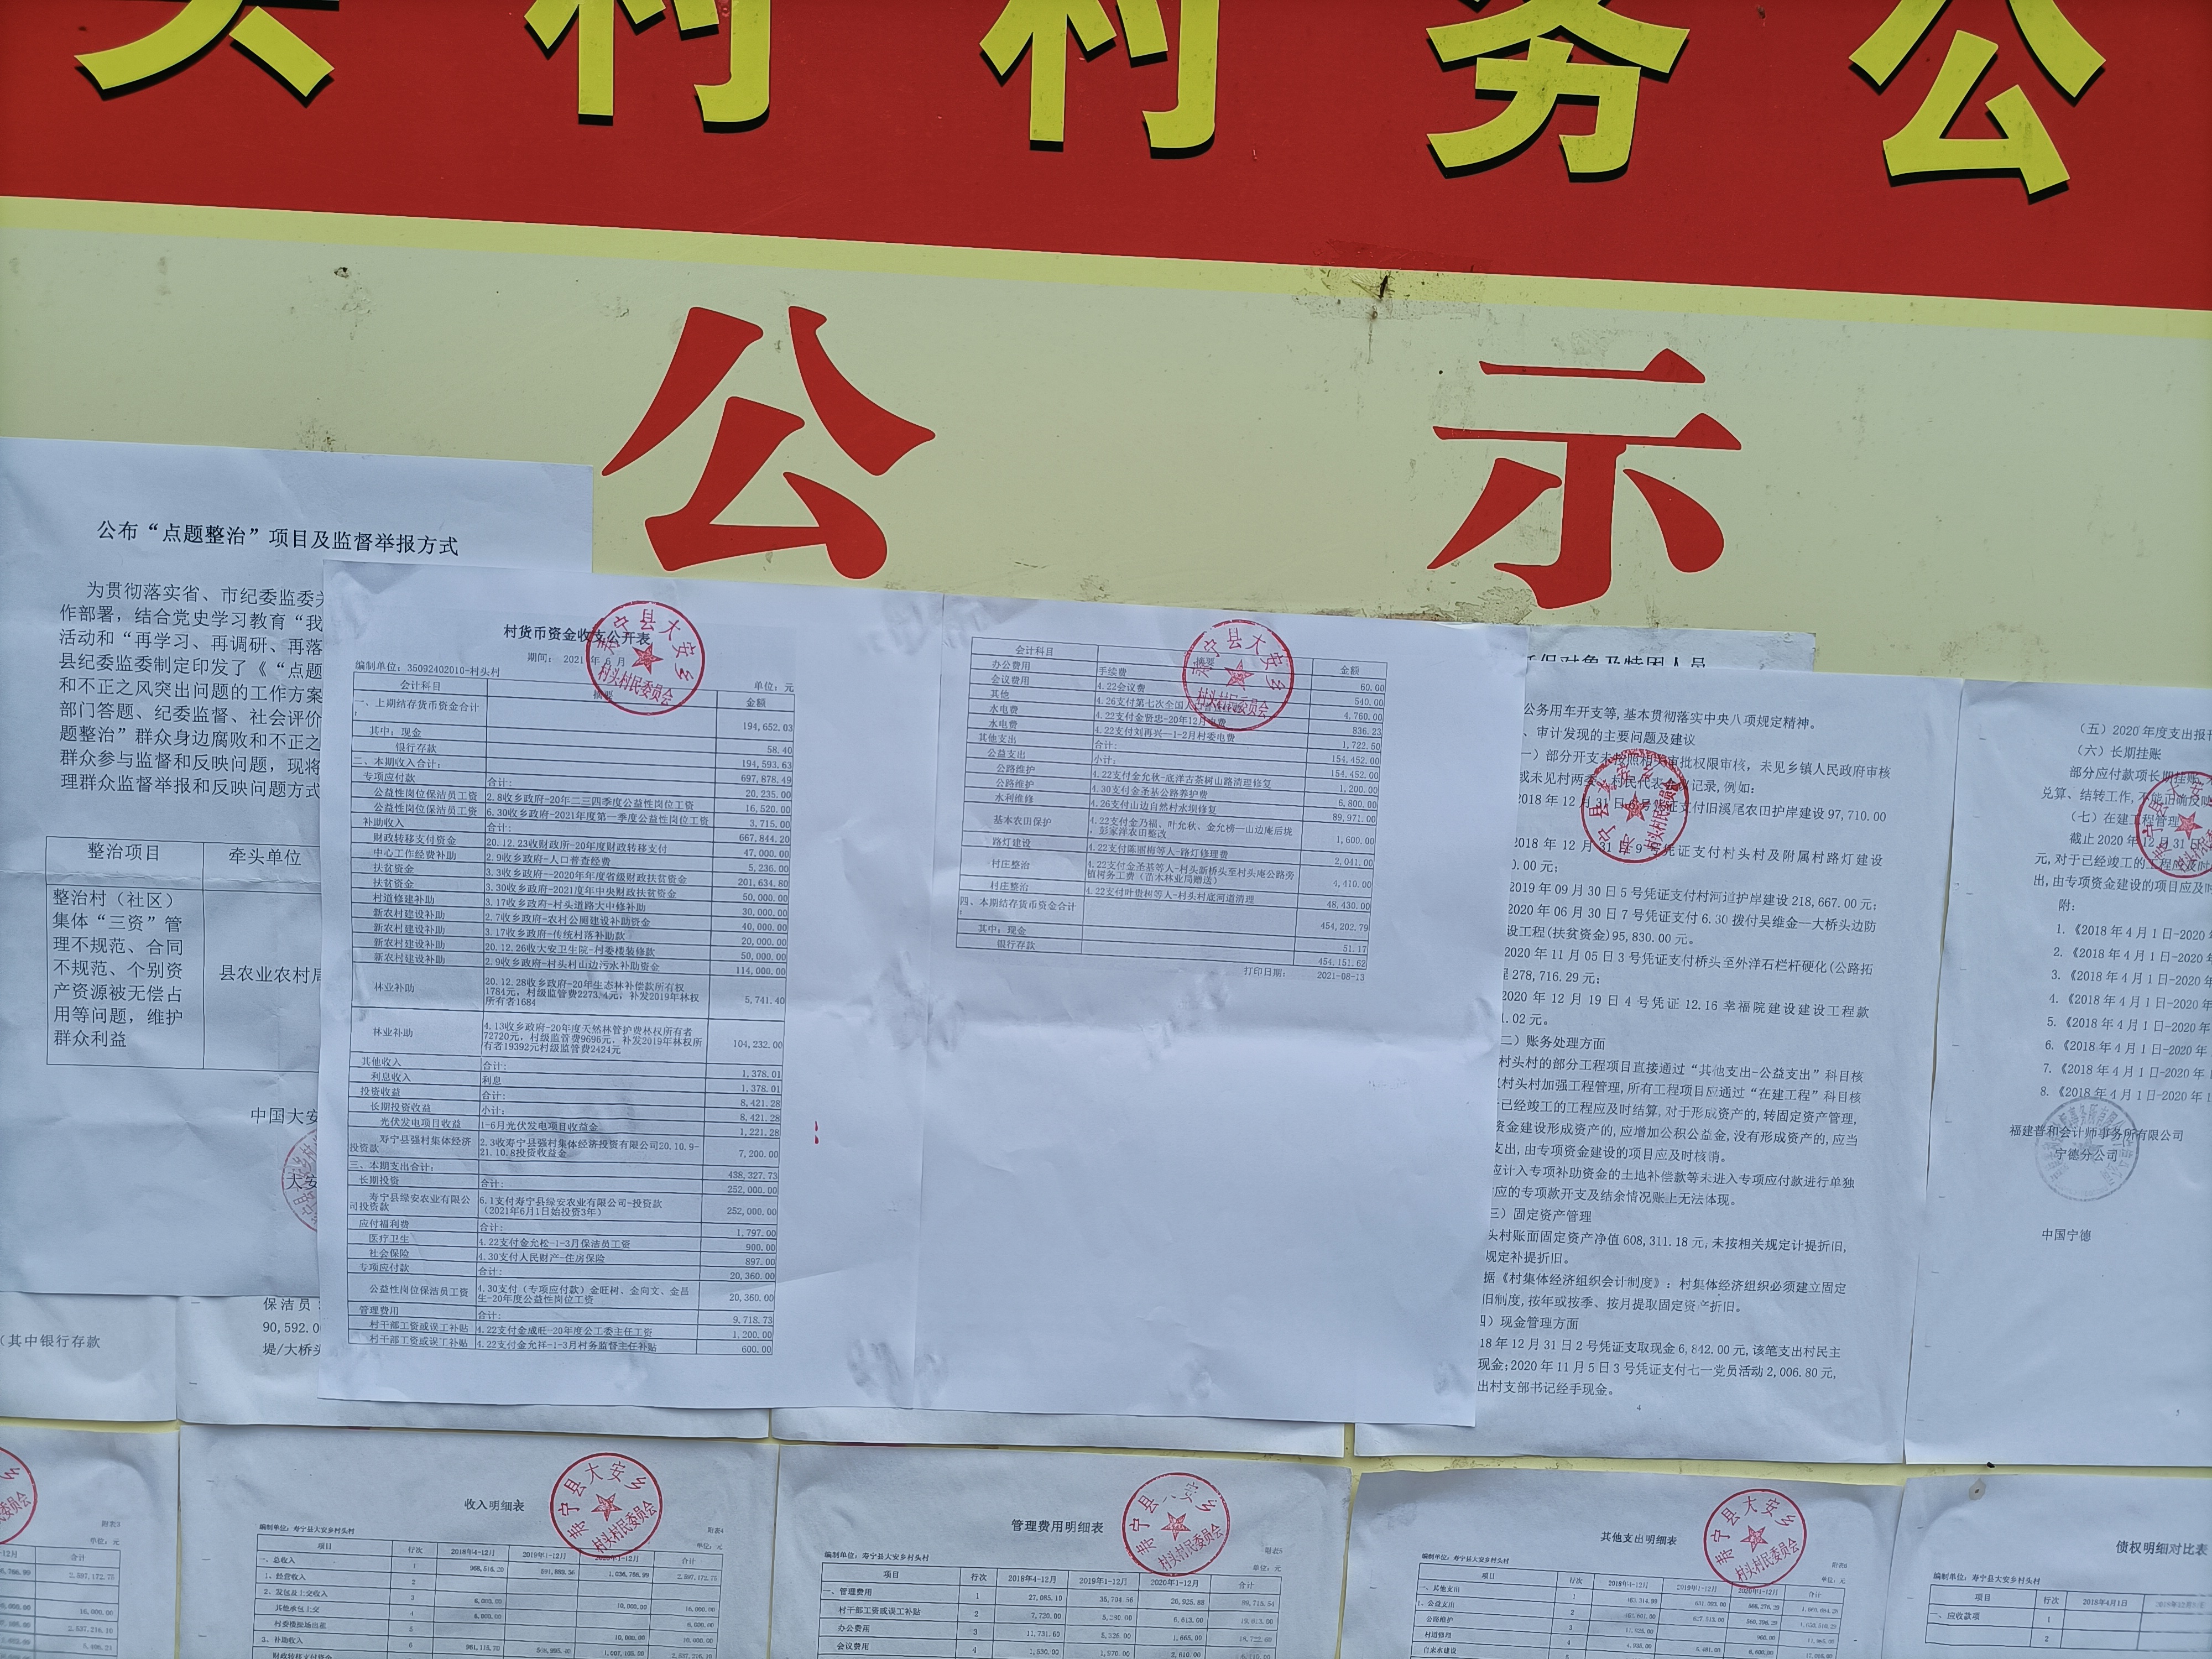 头 村 村 务 公
公 示
公布“点题整治”项目及监督举报方式
为贯彻落实省、市纪委监委
作部署，结合党史学习教育“我
活动和“再学习、再调研、再落
县纪委监委制定印发了《“点题
和不正之风突出问题的工作方案
部门答题、纪委监督、社会评价
题整治”群众身边腐败和不正之
群众参与监督和反映问题，现将
理群众监督举报和反映问题方式
整治项目 牵头单位
整治村（社区）
集体“三资”管
理不规范、合同
不规范、个别资
产资源被无偿占
用等问题，维护
群众利益
县农业农村局
中国大安
大安
村货币资金收支公开表
期间： 2021年6月
编制单位：35092402010-村头村 单位：元
会计科目 摘要 金额
一、上期结存货币资金合计： 194,652.03
其中：现金 58.40
银行存款 194,593.63
二、本期收入合计： 697,878.49
专项应付款 合计： 20,235.00
公益性岗位保洁员工资 2.8收乡政府-20年二三四季度公益性岗位工资 16,520.00
公益性岗位保洁员工资 6.30收乡政府-2021年度第一季度公益性岗位工资 3,715.00
补助收入 合计： 667,844.20
财政转移支付资金 20.12.23收财政所-20年度财政转移支付 47,000.00
中心工作经费补助 2.9收乡政府-人口普查经费 5,236.00
扶贫资金 3.3收乡政府-2020年年度省级财政扶贫资金 201,634.80
扶贫资金 3.30收乡政府-2021度年中央财政扶贫资金 50,000.00
村道修建补助 3.17收乡政府-村头道路大中修补助 30,000.00
新农村建设补助 2.7收乡政府-农村公厕建设补助资金 40,000.00
新农村建设补助 3.17收乡政府-传统村落补助款 20,000.00
新农村建设补助 20.12.26收大安卫生院-村委楼装修款 50,000.00
新农村建设补助 2.9收乡政府-村头村山边污水补助资金 114,000.00
林业补助 20.12.28收乡政府-20年生态林补偿款所有权1784元，村级监管费2273.4元，补发2019年林权所有者1684 5,741.40
林业补助 4.13收乡政府-20年度天然林管护费林权所有者72720元，村级监管费9696元，补发2019年林权所有者19392元村级监管费2424元 104,232.00
其他收入 合计： 1,378.01
利息收入 利息 1,378.01
投资收益 合计： 8,421.28
长期投资收益 小计： 8,421.28
光伏发电项目收益 1-6月光伏发电项目收益金 1,221.28
寿宁县强村集体经济投资款 2.3收寿宁县强村集体经济投资有限公司20.10.9-21.10.8投资收益金 7,200.00
三、本期支出合计： 438,327.73
长期投资 合计： 252,000.00
寿宁县绿安农业有限公司投资款 6.1支付寿宁县绿安农业有限公司-投资款（2021年6月1日始投资3年） 252,000.00
应付福利费 合计： 1,797.00
医疗卫生 4.22支付金允松-1-3月保洁员工资 900.00
社会保险 4.30支付人民财产-住房保险 897.00
专项应付款 合计： 20,360.00
公益性岗位保洁员工资 4.30支付（专项应付款）金旺树、金向文、金昌生-20年度公益性岗位工资 20,360.00
管理费用 合计： 9,718.73
村干部工资或误工补贴 4.22支付金成旺-20年度公工委主任工资 1,200.00
村干部工资或误工补贴 4.22支付金允祥-1-3月村务监督主任补贴 600.00
寿宁县大安乡
村头村民委员会
会计科目 摘要 金额
办公费用 手续费 60.00
会议费用 4.22会议费 540.00
其他 4.26支付第七次全国人口普查 4,760.00
水电费 4.22支付金贤忠-20年12月电费 836.23
水电费 4.22支付刘再兴--1-2月村委电费 1,722.50
其他支出 合计： 154,452.00
公益支出 小计： 154,452.00
公路维护 4.22支付金允秋-底洋古茶树山路清理修复 1,200.00
公路维护 4.30支付金圣基公路养护费 6,800.00
水利维修 4.26支付山边自然村水坝修复 89,971.00
基本农田保护 4.22支付金乃福、叶允秋、金允榜--山边庵后垅、彭家洋农田整改 1,600.00
路灯建设 4.22支付陈丽梅等人-路灯修理费 2,041.00
村庄整治 4.22支付金圣基等人-村头新桥头至村头庵公路旁植树务工费（苗木林业局赠送） 4,410.00
村庄整治 4.22支付叶贵树等人-村头村底河道清理 48,430.00
四、本期结存货币资金合计： 454,202.79
其中：现金 51.17
银行存款 454,151.62
打印日期： 2021-08-13
寿宁县大安乡
村头村民委员会
低保对象及特困人员
公务用车开支等，基本贯彻落实中央八项规定精神。
、审计发现的主要问题及建议
一）部分开支未按照相关审批权限审核，未见乡镇人民政府审核
或未见村两委、村民代表会议记录，例如：
2018年12月31日 号凭证支付旧溪尾农田护岸建设97,710.00
2018年12月31日9号凭证支付村头村及附属村路灯建设
0.00元；
2019年09月30日5号凭证支付村河道护岸建设218,667.00元；
2020年06月30日7号凭证支付6.30拨付吴维金—大桥头边防
设工程(扶贫资金)95,830.00元。
2020年11月05日3号凭证支付桥头至外洋石栏杆硬化(公路拓
278,716.29元；
2020年12月19日4号凭证12.16幸福院建设建设工程款
1.02元。
二）账务处理方面
村头村的部分工程项目直接通过“其他支出-公益支出”科目核
村头村加强工程管理，所有工程项目应通过“在建工程”科目核
已经竣工的工程应及时结算，对于形成资产的，转固定资产管理，
资金建设形成资产的，应增加公积公益金，没有形成资产的，应当
支出，由专项资金建设的项目应及时核销。
应计入专项补助资金的土地补偿款等未进入专项应付款进行单独
应的专项款开支及结余情况账上无法体现。
三）固定资产管理
头村账面固定资产净值608,311.18元，未按相关规定计提折旧，
规定补提折旧。
据《村集体经济组织会计制度》：村集体经济组织必须建立固定
旧制度，按年或按季、按月提取固定资产折旧。
四）现金管理方面
18年12月31日2号凭证支取现金6,842.00元，该笔支出村民主
现金；2020年11月5日3号凭证支付七一党员活动2,006.80元，
出村支部书记经手现金。
4
（五）2020年度支出报
（六）长期挂账
部分应付款项长期挂账
兑算、结转工作，不能正确反映
（七）在建工程管理
截止2020年12月31日
元，对于已经竣工的工程应及时
出，由专项资金建设的项目应及时
附：
1.《2018年4月1日-2020年
2.《2018年4月1日-2020年
3.《2018年4月1日-2020年
4.《2018年4月1日-2020年
5.《2018年4月1日-2020年
6.《2018年4月1日-2020年
7.《2018年4月1日-2020年
8.《2018年4月1日-2020年1
福建普和会计师事务所有限公司
宁德分公司
中国宁德
（其中银行存款
保洁员
90,592.0
堤/大桥头
收入明细表
附表4
编制单位：寿宁县大安乡村头村 单位：元
项目 行次 2018年4-12月 2019年1-12月 2020年1-12月 合计
一、总收入 1
1、经营收入 2
2、发包及上交收入 3
其他承包上交 4
村委楼操场出租 5
3、补助收入 6
财政转移支付资金
寿宁县大安乡
村头村民委员会
管理费用明细表
编制单位：寿宁县大安乡村头村 单位：元
项目 行次 2018年4-12月 2019年1-12月 2020年1-12月 合计
一、管理费用 1 27,085.10 35,704.56 26,925.88
村干部工资或误工补贴 2 7,720.00 5,280.00 6,613.00
办公费用 3 11,731.60 5,326.00 1,665.00
会议费用 4 1,530.00 1,970.00 2,610.00
其他支出明细表
编制单位：寿宁县大安乡村头村 单位：元
项目 行次 2018年4-12月 2019年1-12月 2020年1-12月 合计
一、其他支出 1
1、公益支出 2
公路维护 3
村道修理 4
自来水建设 5
寿宁县大安乡
村头村民委员会
债权明细对比表
编制单位：寿宁县大安乡村头村
项目 行次 2018年4月1日
一、应收款项 1
2